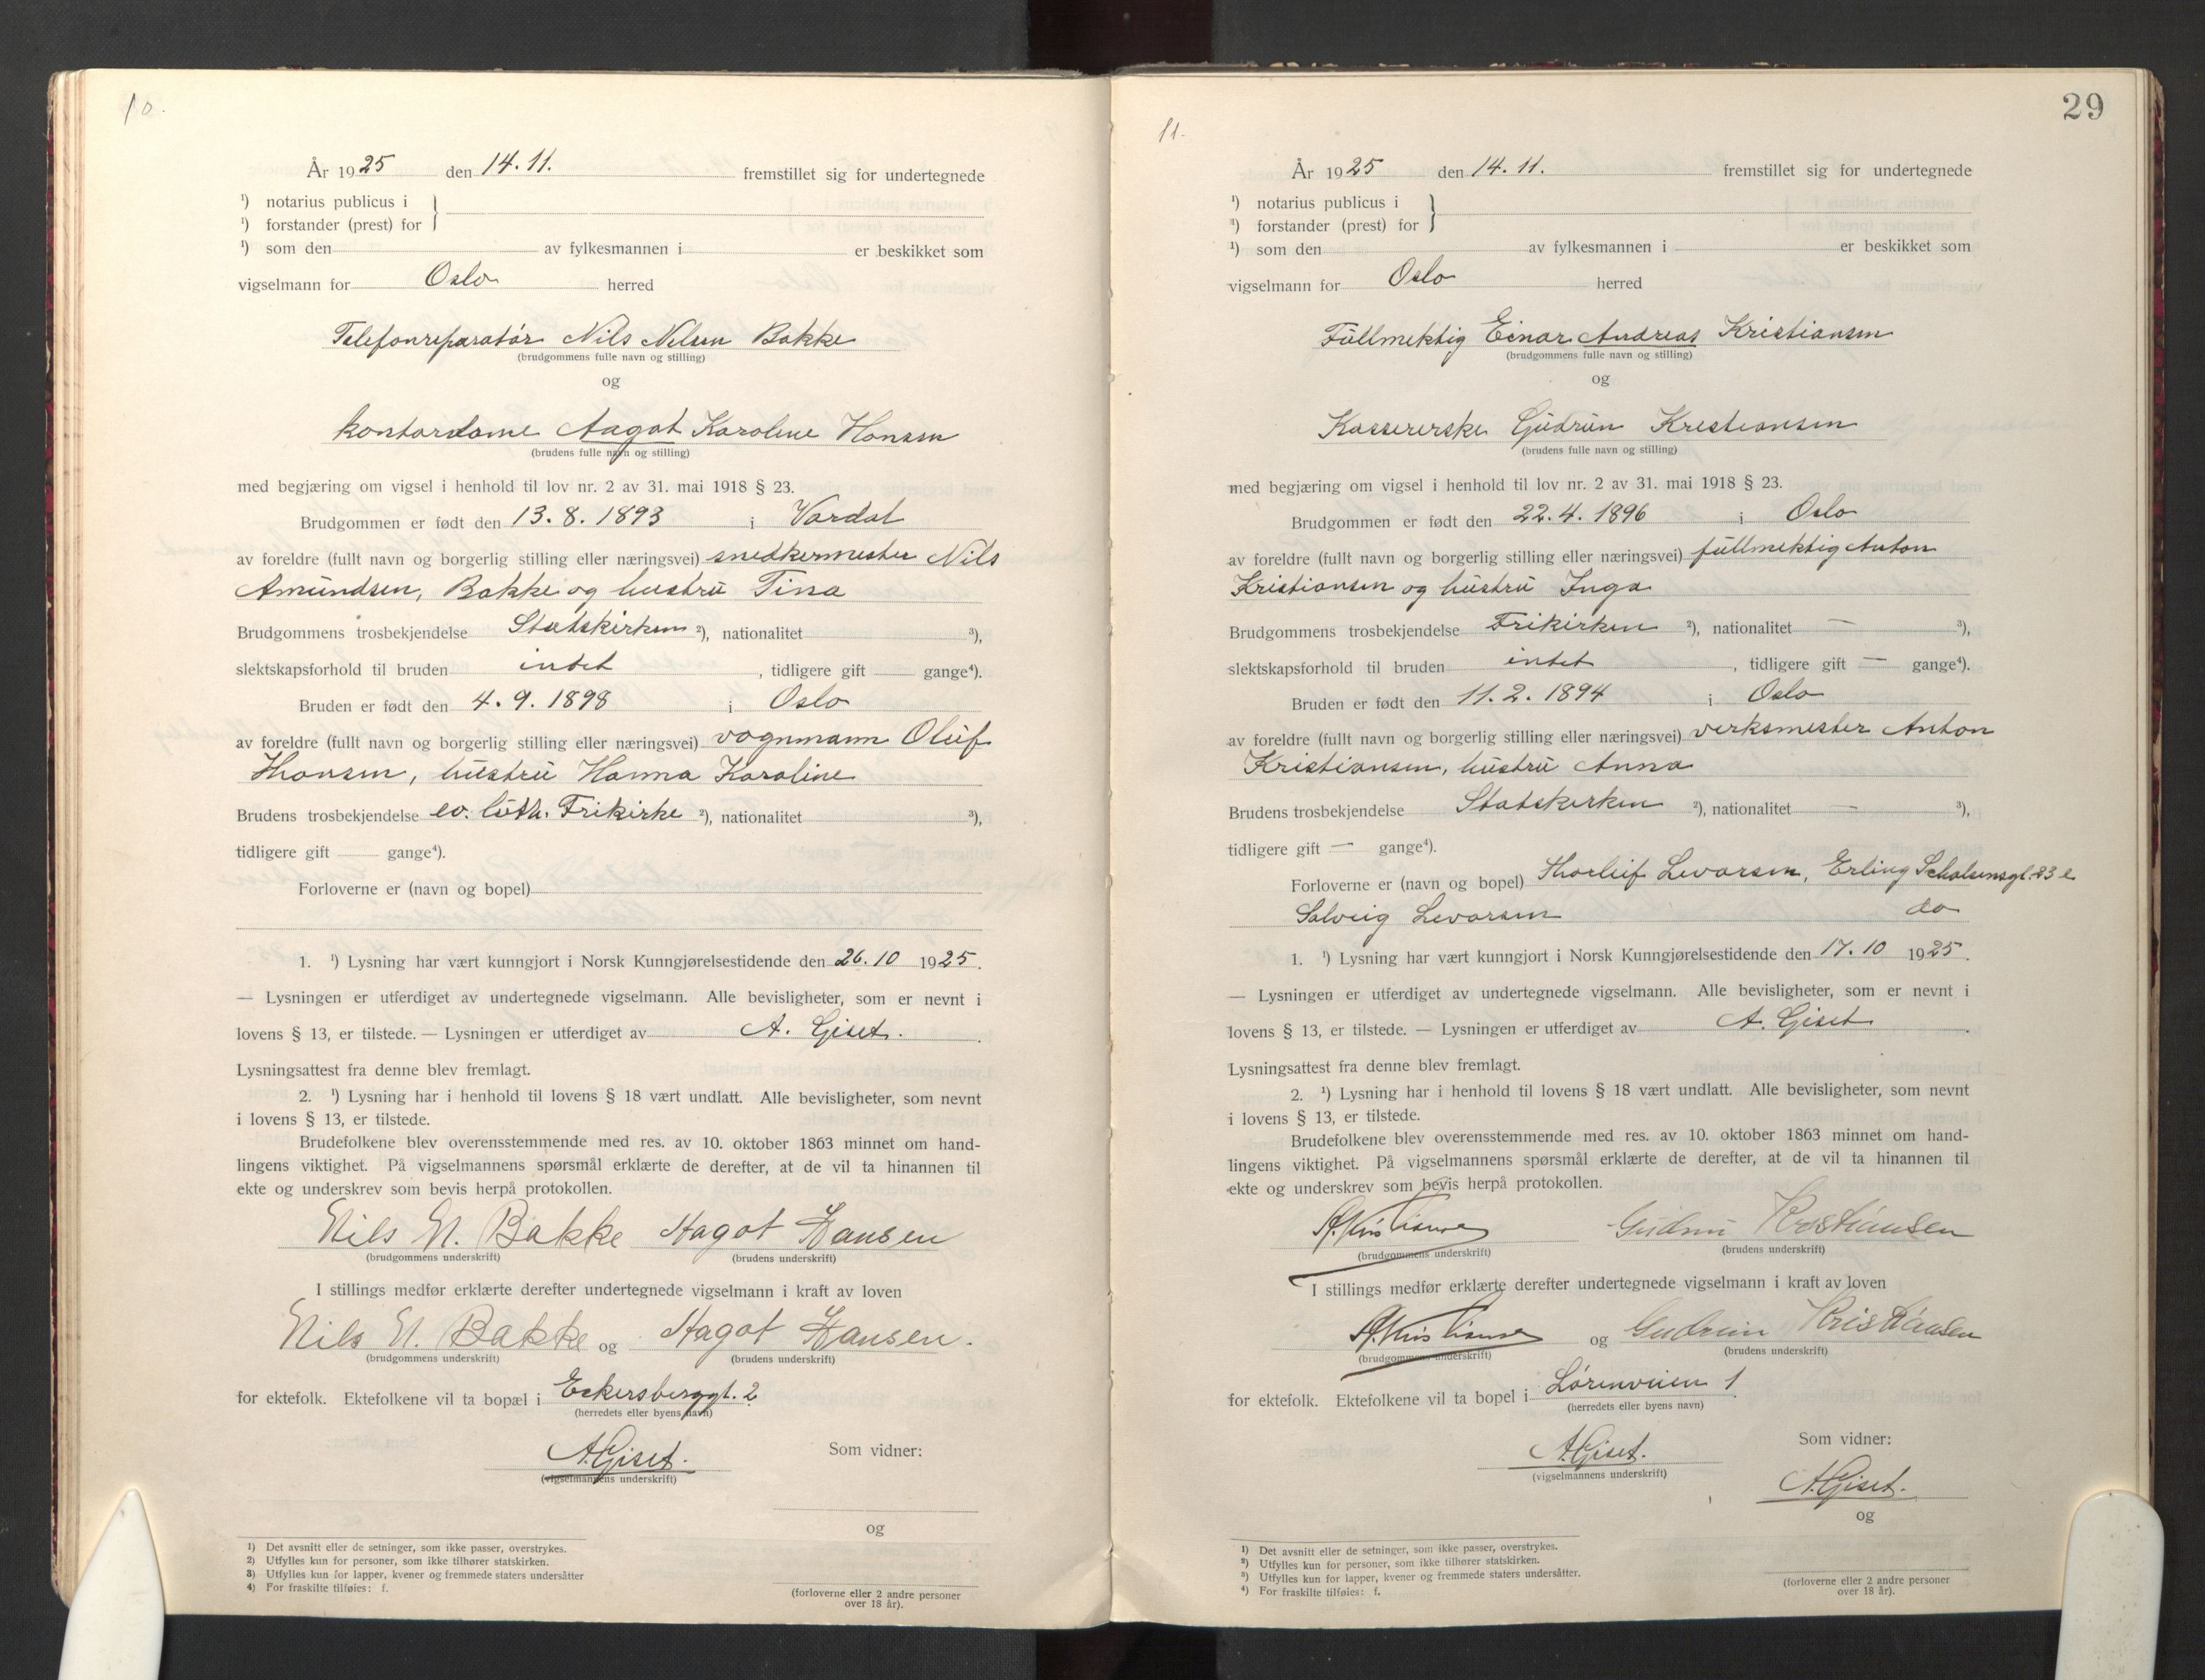 10.
År 1925 den 14.11. fremstillet sig for undertegnede
¹) notarius publicus i
¹) forstander (prest) for
¹) som den av fylkesmannen i er beskikket som
vigselmann for Oslo herred
Telefonreparatør Nils Nilsen Bakke
(brudgommens fulle navn og stilling)
og
kontordame Aagot Karoline Hansen
(brudens fulle navn og stilling)
med begjæring om vigsel i henhold til lov nr. 2 av 31. mai 1918 § 23.
Brudgommen er født den 13.8.1893 i Vardal
av foreldre (fullt navn og borgerlig stilling eller næringsvei) snedkermester Nils
Amundsen, Bakke og hustru Tina
Brudgommens trosbekjendelse Statskirken ²), nationalitet ³),
slektskapsforhold til bruden intet , tidligere gift — gange⁴).
Bruden er født den 4.9.1898 i Oslo
av foreldre (fullt navn og borgerlig stilling eller næringsvei) vognmann Oluf
Hansen, hustru Hanna Karoline
Brudens trosbekjendelse ev. luth. Frikirke ²), nationalitet ³),
tidligere gift — gange⁴).
Forloverne er (navn og bopel)
1. ¹) Lysning har vært kunngjort i Norsk Kunngjørelsestidende den 26.10 1925.
— Lysningen er utferdiget av undertegnede vigselmann. Alle bevisligheter, som er nevnt i
lovens § 13, er tilstede. — Lysningen er utferdiget av A. Giset.
Lysningsattest fra denne blev fremlagt.
2. ¹) Lysning har i henhold til lovens § 18 vært undlatt. Alle bevisligheter, som nevnt
i lovens § 13, er tilstede.
Brudefolkene blev overensstemmende med res. av 10. oktober 1863 minnet om hand-
lingens viktighet. På vigselmannens spørsmål erklærte de derefter, at de vil ta hinannen til
ekte og underskrev som bevis herpå protokollen.
Nils N. Bakke Aagot Hansen
(brudgommens underskrift) (brudens underskrift)
I stillings medfør erklærte derefter undertegnede vigselmann i kraft av loven
Nils N. Bakke og Aagot Hansen.
(brudgommens underskrift) (brudens underskrift)
for ektefolk. Ektefolkene vil ta bopæl i Eckersberggt. 2
(herredets eller byens navn)
A. Giset. Som vidner:
(vigselmannens underskrift)
og
1) Det avsnitt eller de setninger, som ikke passer, overstrykes.
2) Utfylles kun for personer, som ikke tilhører statskirken.
3) Utfylles kun for lapper, kvener og fremmede staters undersåtter
4) For fraskilte tilføies: f.
(forloverne eller 2 andre personer
over 18 år).
29
11.
År 1925 den 14.11. fremstillet sig for undertegnede
¹) notarius publicus i
¹) forstander (prest) for
¹) som den av fylkesmannen i er beskikket som
vigselmann for Oslo herred
Fullmektig Einar Andreas Kristiansen
(brudgommens fulle navn og stilling)
og
Kassererske Gudrun Kristiansen
(brudens fulle navn og stilling)
med begjæring om vigsel i henhold til lov nr. 2 av 31. mai 1918 § 23.
Brudgommen er født den 22.4.1896 i Oslo
av foreldre (fullt navn og borgerlig stilling eller næringsvei) fullmektig Anton
Kristiansen og hustru Inga
Brudgommens trosbekjendelse Frikirken ²), nationalitet — ³),
slektskapsforhold til bruden intet , tidligere gift — gange⁴).
Bruden er født den 11.2.1894 i Oslo
av foreldre (fullt navn og borgerlig stilling eller næringsvei) verksmester Anton
Kristiansen, hustru Anna
Brudens trosbekjendelse Statskirken ²), nationalitet — ³),
tidligere gift — gange⁴).
Forloverne er (navn og bopel) Thorleif Levorsen, Erling 23 e
Solveig Levorsen do
1. ¹) Lysning har vært kunngjort i Norsk Kunngjørelsestidende den 17.10 1925.
— Lysningen er utferdiget av undertegnede vigselmann. Alle bevisligheter, som er nevnt i
lovens § 13, er tilstede. — Lysningen er utferdiget av A. Giset.
Lysningsattest fra denne blev fremlagt.
2. ¹) Lysning har i henhold til lovens § 18 vært undlatt. Alle bevisligheter, som nevnt
i lovens § 13, er tilstede.
Brudefolkene blev overensstemmende med res. av 10. oktober 1863 minnet om hand-
lingens viktighet. På vigselmannens spørsmål erklærte de derefter, at de vil ta hinannen til
ekte og underskrev som bevis herpå protokollen.
Gudrun Kristiansen
(brudgommens underskrift) (brudens underskrift)
I stillings medfør erklærte derefter undertegnede vigselmann i kraft av loven
og Gudrun Kristiansen
(brudgommens underskrift) (brudens underskrift)
for ektefolk. Ektefolkene vil ta bopel i Lørenveien 1
(herredets eller byens navn)
A. Giset. Som vidner:
(vigselmannens underskrift)
A. Giset.
og
1) Det avsnitt eller de setninger, som ikke passer, overstrykes.
²) Utfylles kun for personer, som ikke tilhører statskirken.
³) Utfylles kun for lapper, kvener og fremmede staters undersåtter.
⁴) For fraskilte tilføies: f.
(forloverne eller 2 andre personer
over 18 år).